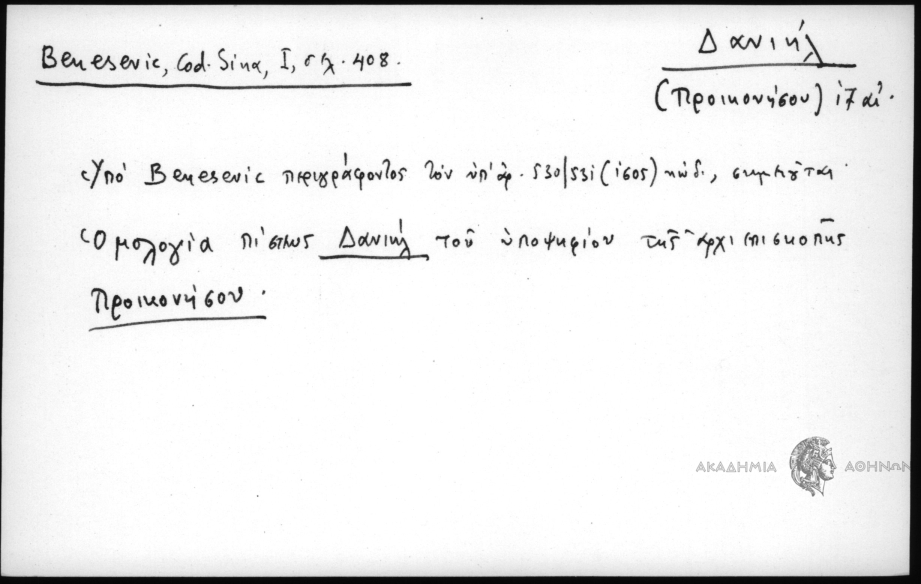 Benesevic, Cod. Sina, I, σελ. 408.
Δανιήλ
(Προικονήσου) ιζ αἰ.
Ὑπό Benesevic περιγράφοντος τόν ὑπ' ἀρ. 530/531 (ισος) κώδ., σημειοῦται.
Ὁμολογία πίστεως Δανιήλ τοῦ ὑποψηφίου τῆς ἀρχιεπισκοπῆς
Προικονήσου.
ΑΚΑΔΗΜΙΑ ΑΘΗΝΩΝ